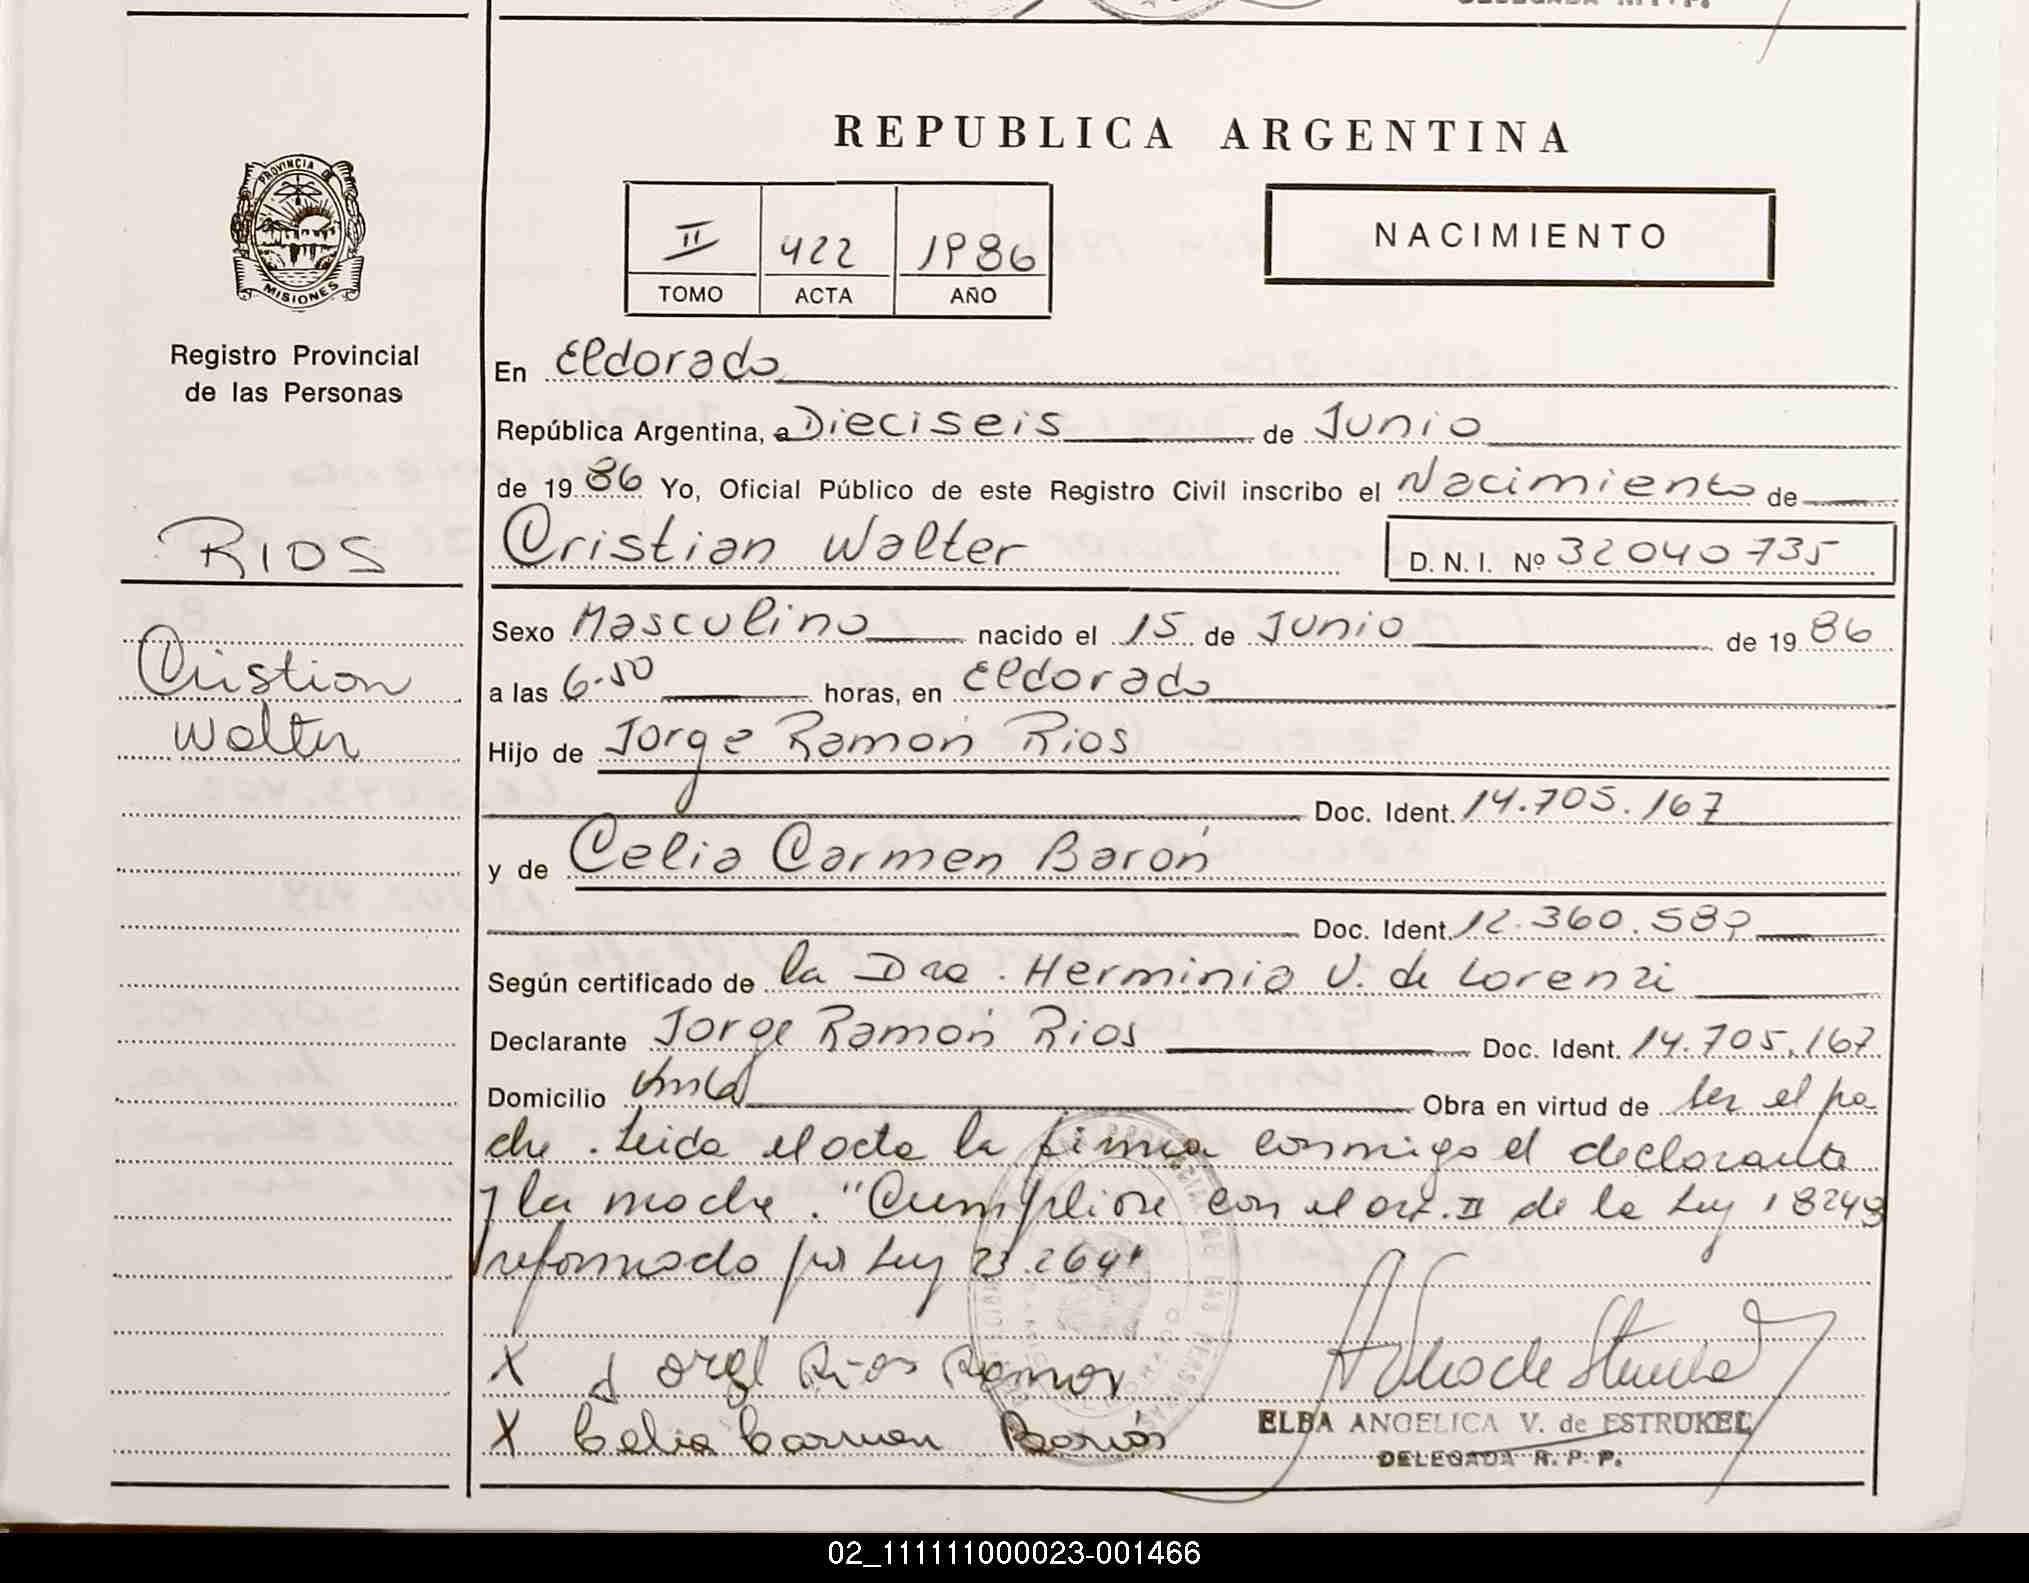 REPUBLICA ARGENTINA
PROVINCIA DE
MISIONES
Registro Provincial
de las Personas
II 422 1986
TOMO ACTA AÑO
NACIMIENTO
En Eldorado
República Argentina, a Dieciseis de Junio
de 1986 Yo, Oficial Público de este Registro Civil inscribo el Nacimiento de
RIOS
Cristian Walter D. N. I. Nº 32040735
Sexo Masculino nacido el 15 de Junio de 1986
Cristian
a las 6-50 horas, en Eldorado
Walter
Hijo de Jorge Ramón Rios
Doc. Ident. 14.705.167
y de Celia Carmen Barón
Doc. Ident. 12.360.589
Según certificado de la Dra. Herminia V. de Lorenzi
Declarante Jorge Ramón Rios Doc. Ident. 14.705.167
Domicilio Obra en virtud de ser el pa
dre. Leida el acta la firma conmigo el declarante
y la madre. "Cumpliose con el art. II de la Ley 18248
reformado por Ley 23.264"
X Jorgl Rios Ramon
X Celia Carmen
ELBA ANGELICA V. de ESTRUKEL
DELEGADA R. P. P.
02_111111000023-001466